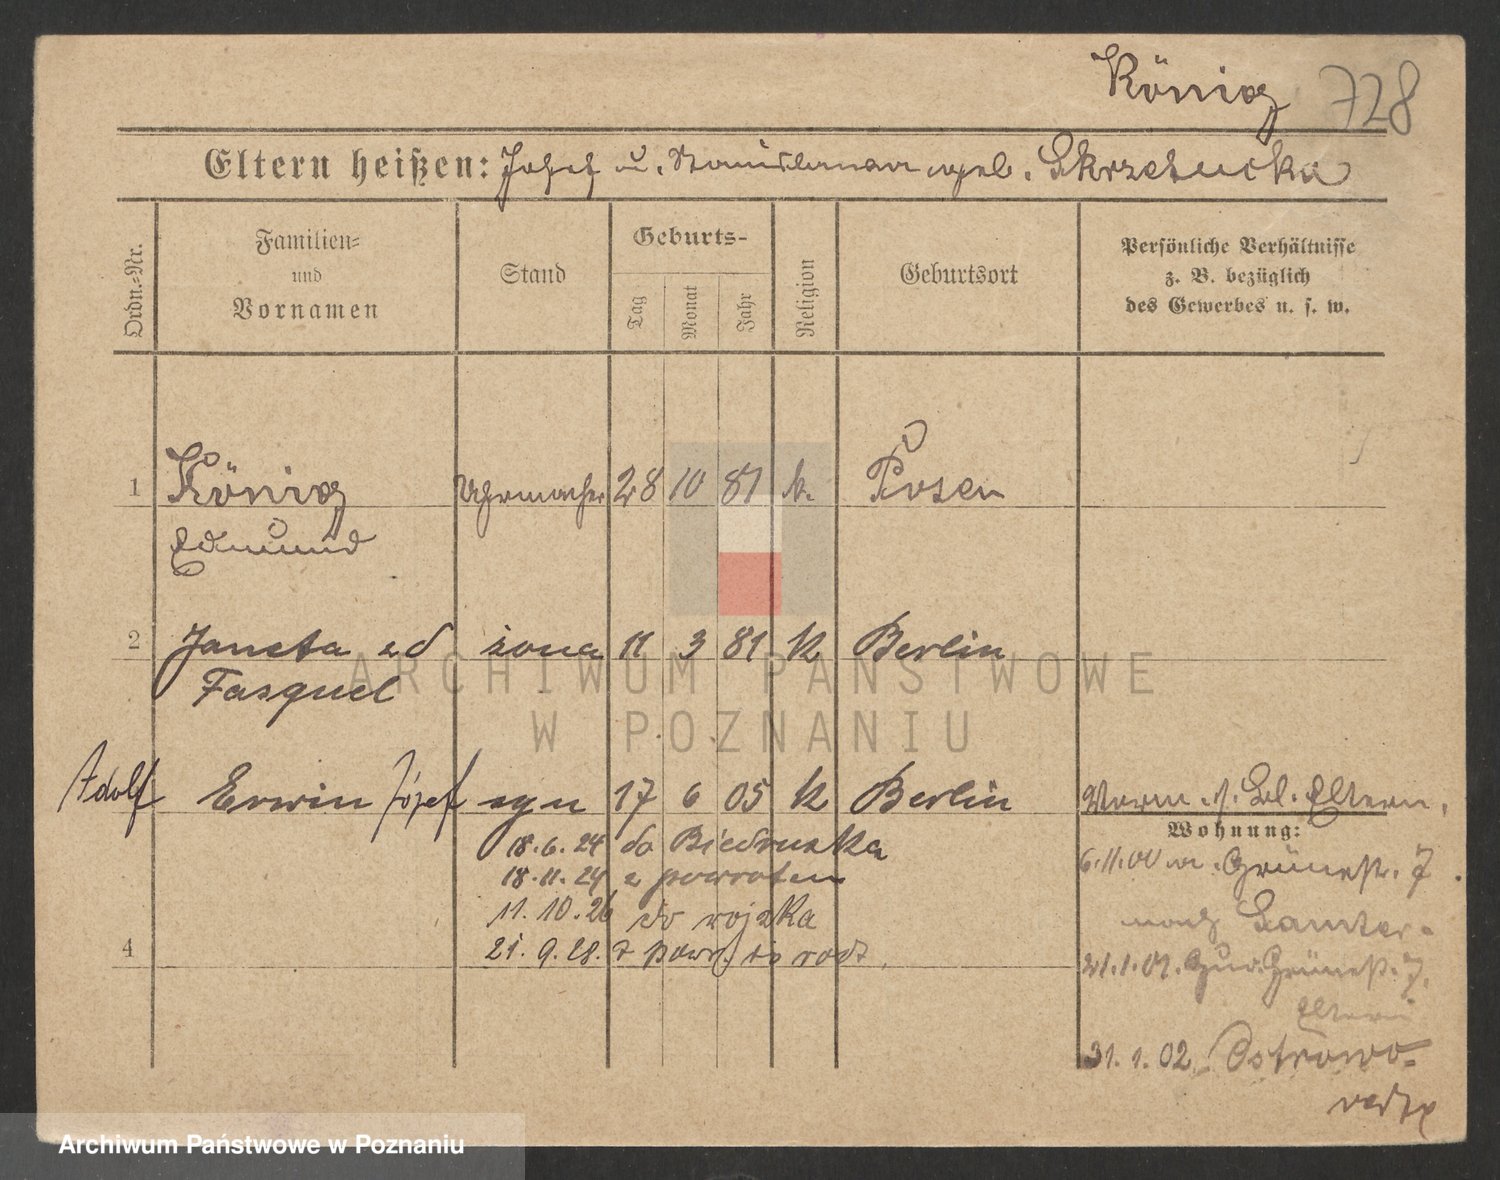 König 728
Eltern heißen: Josef u. Stanislawa geb. Skrzetucka
Ordn.-Nr.
Familien-
und
Vornamen
Stand
Geburts-
Tag
Monat
Jahr
Religion
Geburtsort
Persönliche Verhältnisse
z. B. bezüglich
des Gewerbes u. s. w.
1 König Uhrmacher 28 10 81 k. Posen
Edmund
2 Janeta zd żona 11 3 81 k Berlin
Fasquel
Adolf Erwin Józef syn 17 6 05 k Berlin
18.6.24 do Biedruska
18.11.24 z powrotem
11.10.26 do wojska
21.9.28. z powr. do rodz.
4
Vorm. s. Bl. Eltern.
Wohnung:
6.11.00 Grünestr. 7
nach Samter
21.1.01. Grünestr. 7.
Eltern
31.1.02. Ostrowo
ARCHIWUM PAŃSTWOWE
W POZNANIU
Archiwum Państwowe w Poznaniu